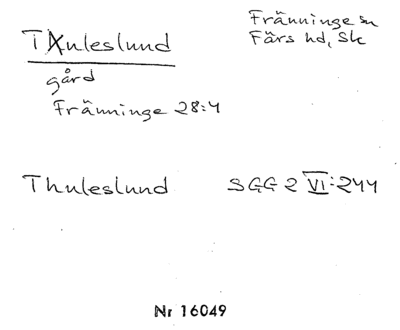 Thuleslund
Fränninge sn
Färs hd, Sk
gård
Fränninge 28:4
Thuleslund SGG 2 VI:244
Nr 16049